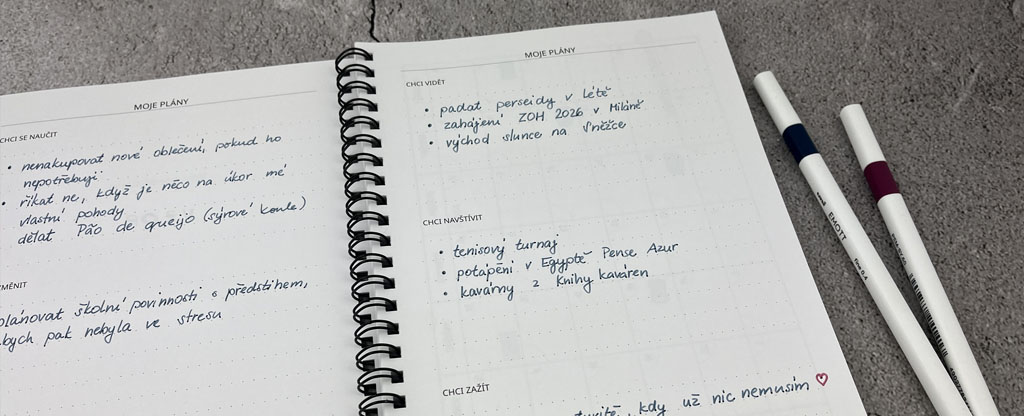 MOJE PLÁNY
CHCI SE NAUČIT
• nenakupovat nové oblečení, pokud ho
nepotřebuji
• říkat ne, když je něco na úkor mé
vlastní pohody
dělat Pão de queijo (sýrové koule)
plánovat školní povinnosti s předstihem,
abych pak nebyla ve stresu
MOJE PLÁNY
CHCI VIDĚT
• padat perseidy v létě
• zahájení ZOH 2026 v Miláně
• východ slunce na Sněžce
CHCI NAVŠTÍVIT
• tenisový turnaj
• potápění v Egyptě Pense Azur
• kavárny z Knihy kaváren
CHCI ZAŽÍT
kdy už nic nemusím ♡
EMOTT
fine 0.4